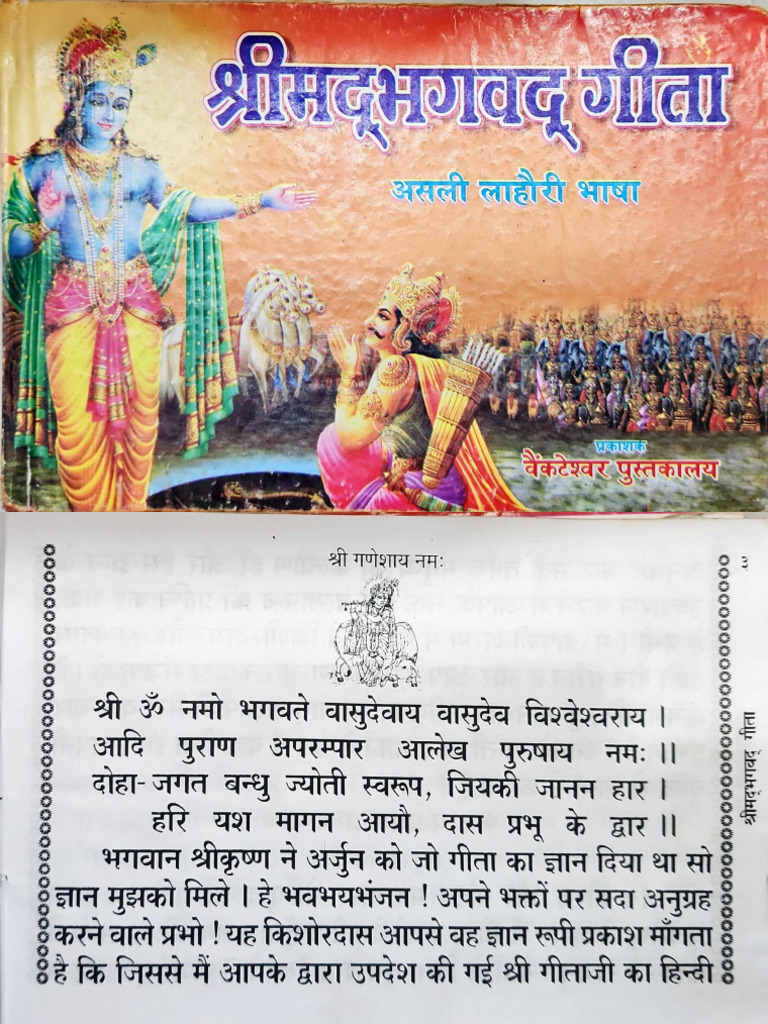 श्रीमद्‌भगवद् गीता
असली लाहौरी भाषा
प्रकाशक
वैंकटेश्वर पुस्तकालय
श्री गणेशाय नमः
३
श्रीमद्‌भगवद् गीता
श्री ॐ नमो भगवते वासुदेवाय वासुदेव विश्वेश्वराय ।
आदि पुराण अपरम्पार आलेख पुरुषाय नमः ।।
दोहा- जगत बन्धु ज्योती स्वरूप, जियकी जानन हार
हरि यश मागन आयौ, दास प्रभू के द्वार ।।
भगवान श्रीकृष्ण ने अर्जुन को जो गीता का ज्ञान दिया था सो
ज्ञान मुझको मिले । हे भवभयभंजन ! अपने भक्तों पर सदा अनुग्रह
करने वाले प्रभो ! यह किशोरदास आपसे वह ज्ञान रूपी प्रकाश माँगता
है कि जिससे मैं आपके द्वारा उपदेश की गई श्री गीताजी का हिन्दी